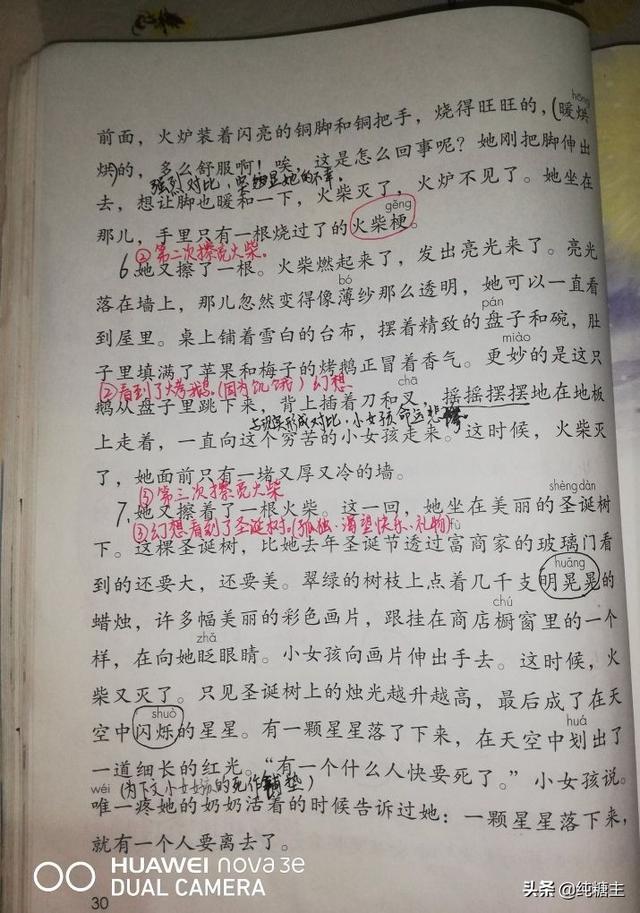 hōng
前面，火炉装着闪亮的铜脚和铜把手，烧得旺旺的，暖烘
烘的，多么舒服啊！唉，这是怎么回事呢？她刚把脚伸出
强烈对比，更想显她的不幸。
去，想让脚也暖和一下，火柴灭了，火炉不见了。她坐在
gěng
那儿，手里只有一根烧过了的火柴梗。
②第二次擦亮火柴。
6.她又擦了一根。火柴燃起来了，发出亮光来了。亮光
bó
落在墙上，那儿忽然变得像薄纱那么透明，她可以一直看
pán
到屋里。桌上铺着雪白的台布，摆着精致的盘子和碗，肚
miào
子里填满了苹果和梅子的烤鹅正冒着香气。更妙的是这只
②看到了烤鹅。(因为饥饿)幻想
chā
鹅从盘子里跳下来，背上插着刀和叉，摇摇摆摆地在地板
与现实形成对比，小女孩命运悲惨
上走着，一直向这个穷苦的小女孩走来。这时候，火柴灭
了，她面前只有一堵又厚又冷的墙。
③第三次擦亮火柴
shèng dàn
7.她又擦着了一根火柴。这一回，她坐在美丽的圣诞树
③幻想看到了圣诞树。(孤独、渴望快乐、礼物)
fù
下。这棵圣诞树，比她去年圣诞节透过富商家的玻璃门看
huǎng
到的还要大，还要美。翠绿的树枝上点着几千支明晃晃的
chú
蜡烛，许多幅美丽的彩色画片，跟挂在商店橱窗里的一个
zhǎ
样，在向她眨眼睛。小女孩向画片伸出手去。这时候，火
柴又灭了。只见圣诞树上的烛光越升越高，最后成了在天
shuò
huá
空中闪烁的星星。有一颗星星落了下来，在天空中划出了
一道细长的红光。“有一个什么人快要死了。”小女孩说。
wéi
(为下文小女孩的死作铺垫)
唯一疼她的奶奶活着的时候告诉过她：一颗星星落下来，
就有一个人要离去了。
30
HUAWEI nova 3e
DUAL CAMERA
头条 @纯糖主